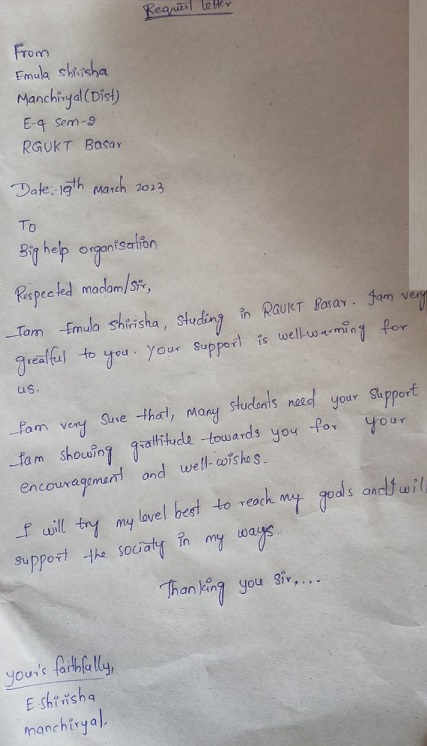 Request letter
From
Emula shirisha
Manchiryal(Dist)
E-4 sem-2
RGUKT Basar
Date:-19th March 2023
To
Big help organisation
Respected madam/sir,
Iam Emula shirisha, studing in RGUKT Basar. Iam very
greatful to you. Your support is well-warming for
us.
Iam very sure that, many students need your support
Iam showing grattitude towards you for your
encouragement and well-wishes.
I will try my level best to reach my goals and I will
support the sociaty in my ways.
Thanking you sir,...
your's faithfully,
E.shirisha
manchiryal.